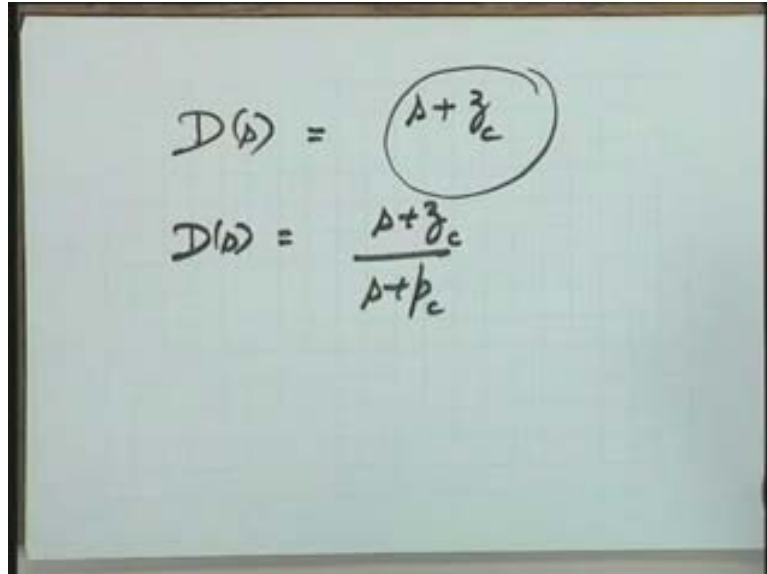 D(s) = s + z_c
D(s) = (s + z_c) / (s + p_c)